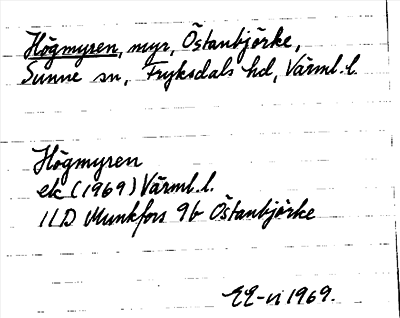 Högmyren, myr, Östanbjörke,
Sunne sn, Fryksdals hd, Värml. l.
Högmyren
ek (1969) Värml. l.
11D Munkfors 9b Östanbjörke
EE-vi 1969.